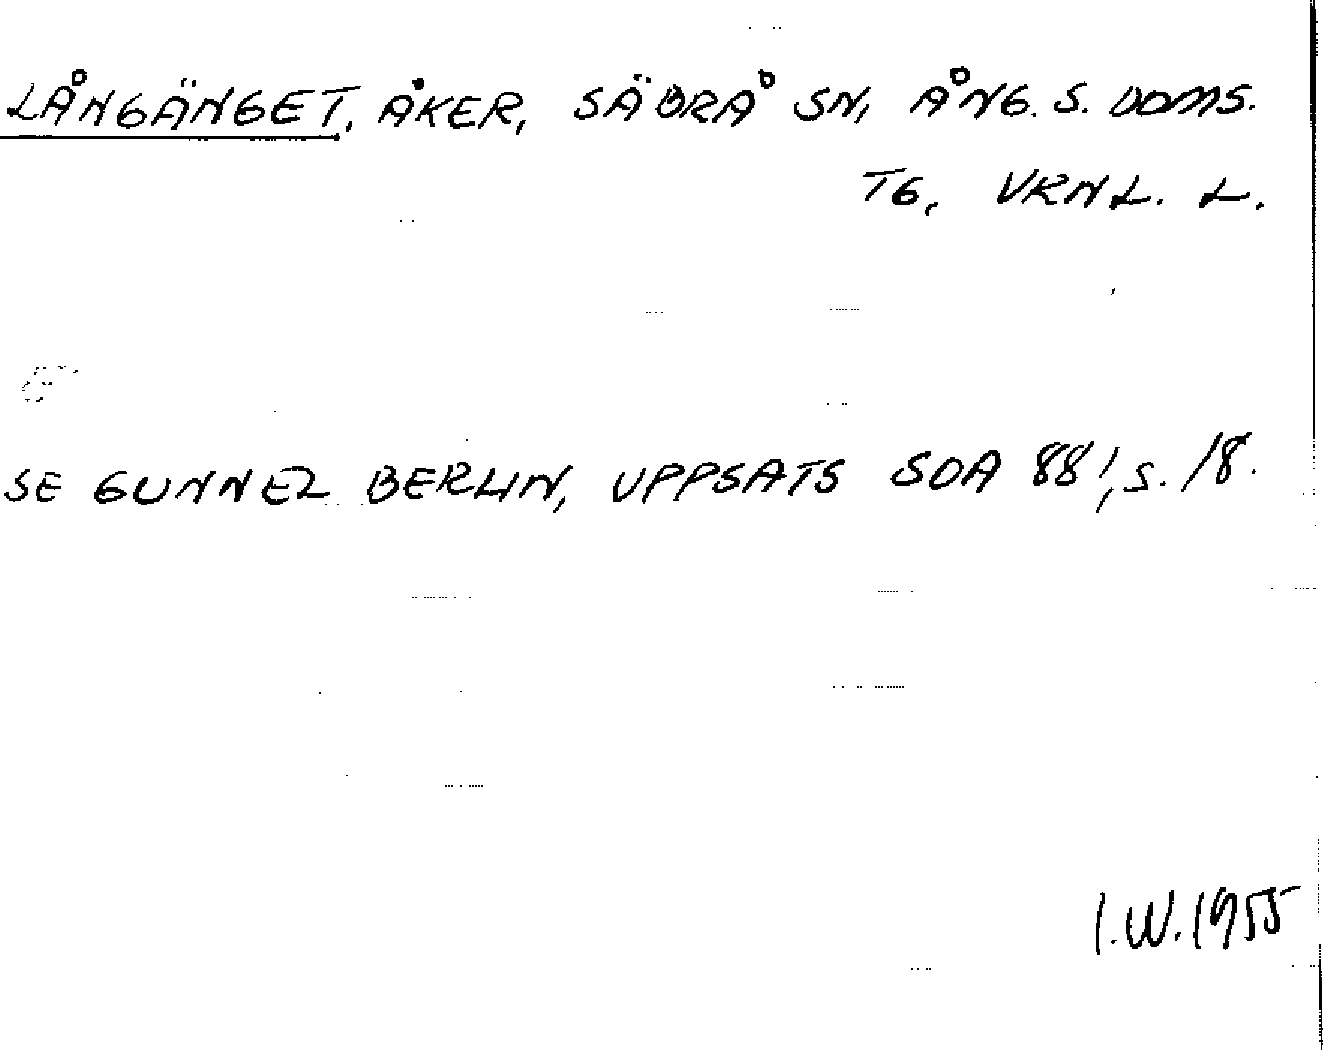 LÅNGÄNGET, ÅKER, SÄBRÅ SN, ÅNG. S. DOMS.
TG, VRNL. L.
SE GUNNEL BERLIN, UPPSATS SOA 88!, S. 18.
I.W. 1955